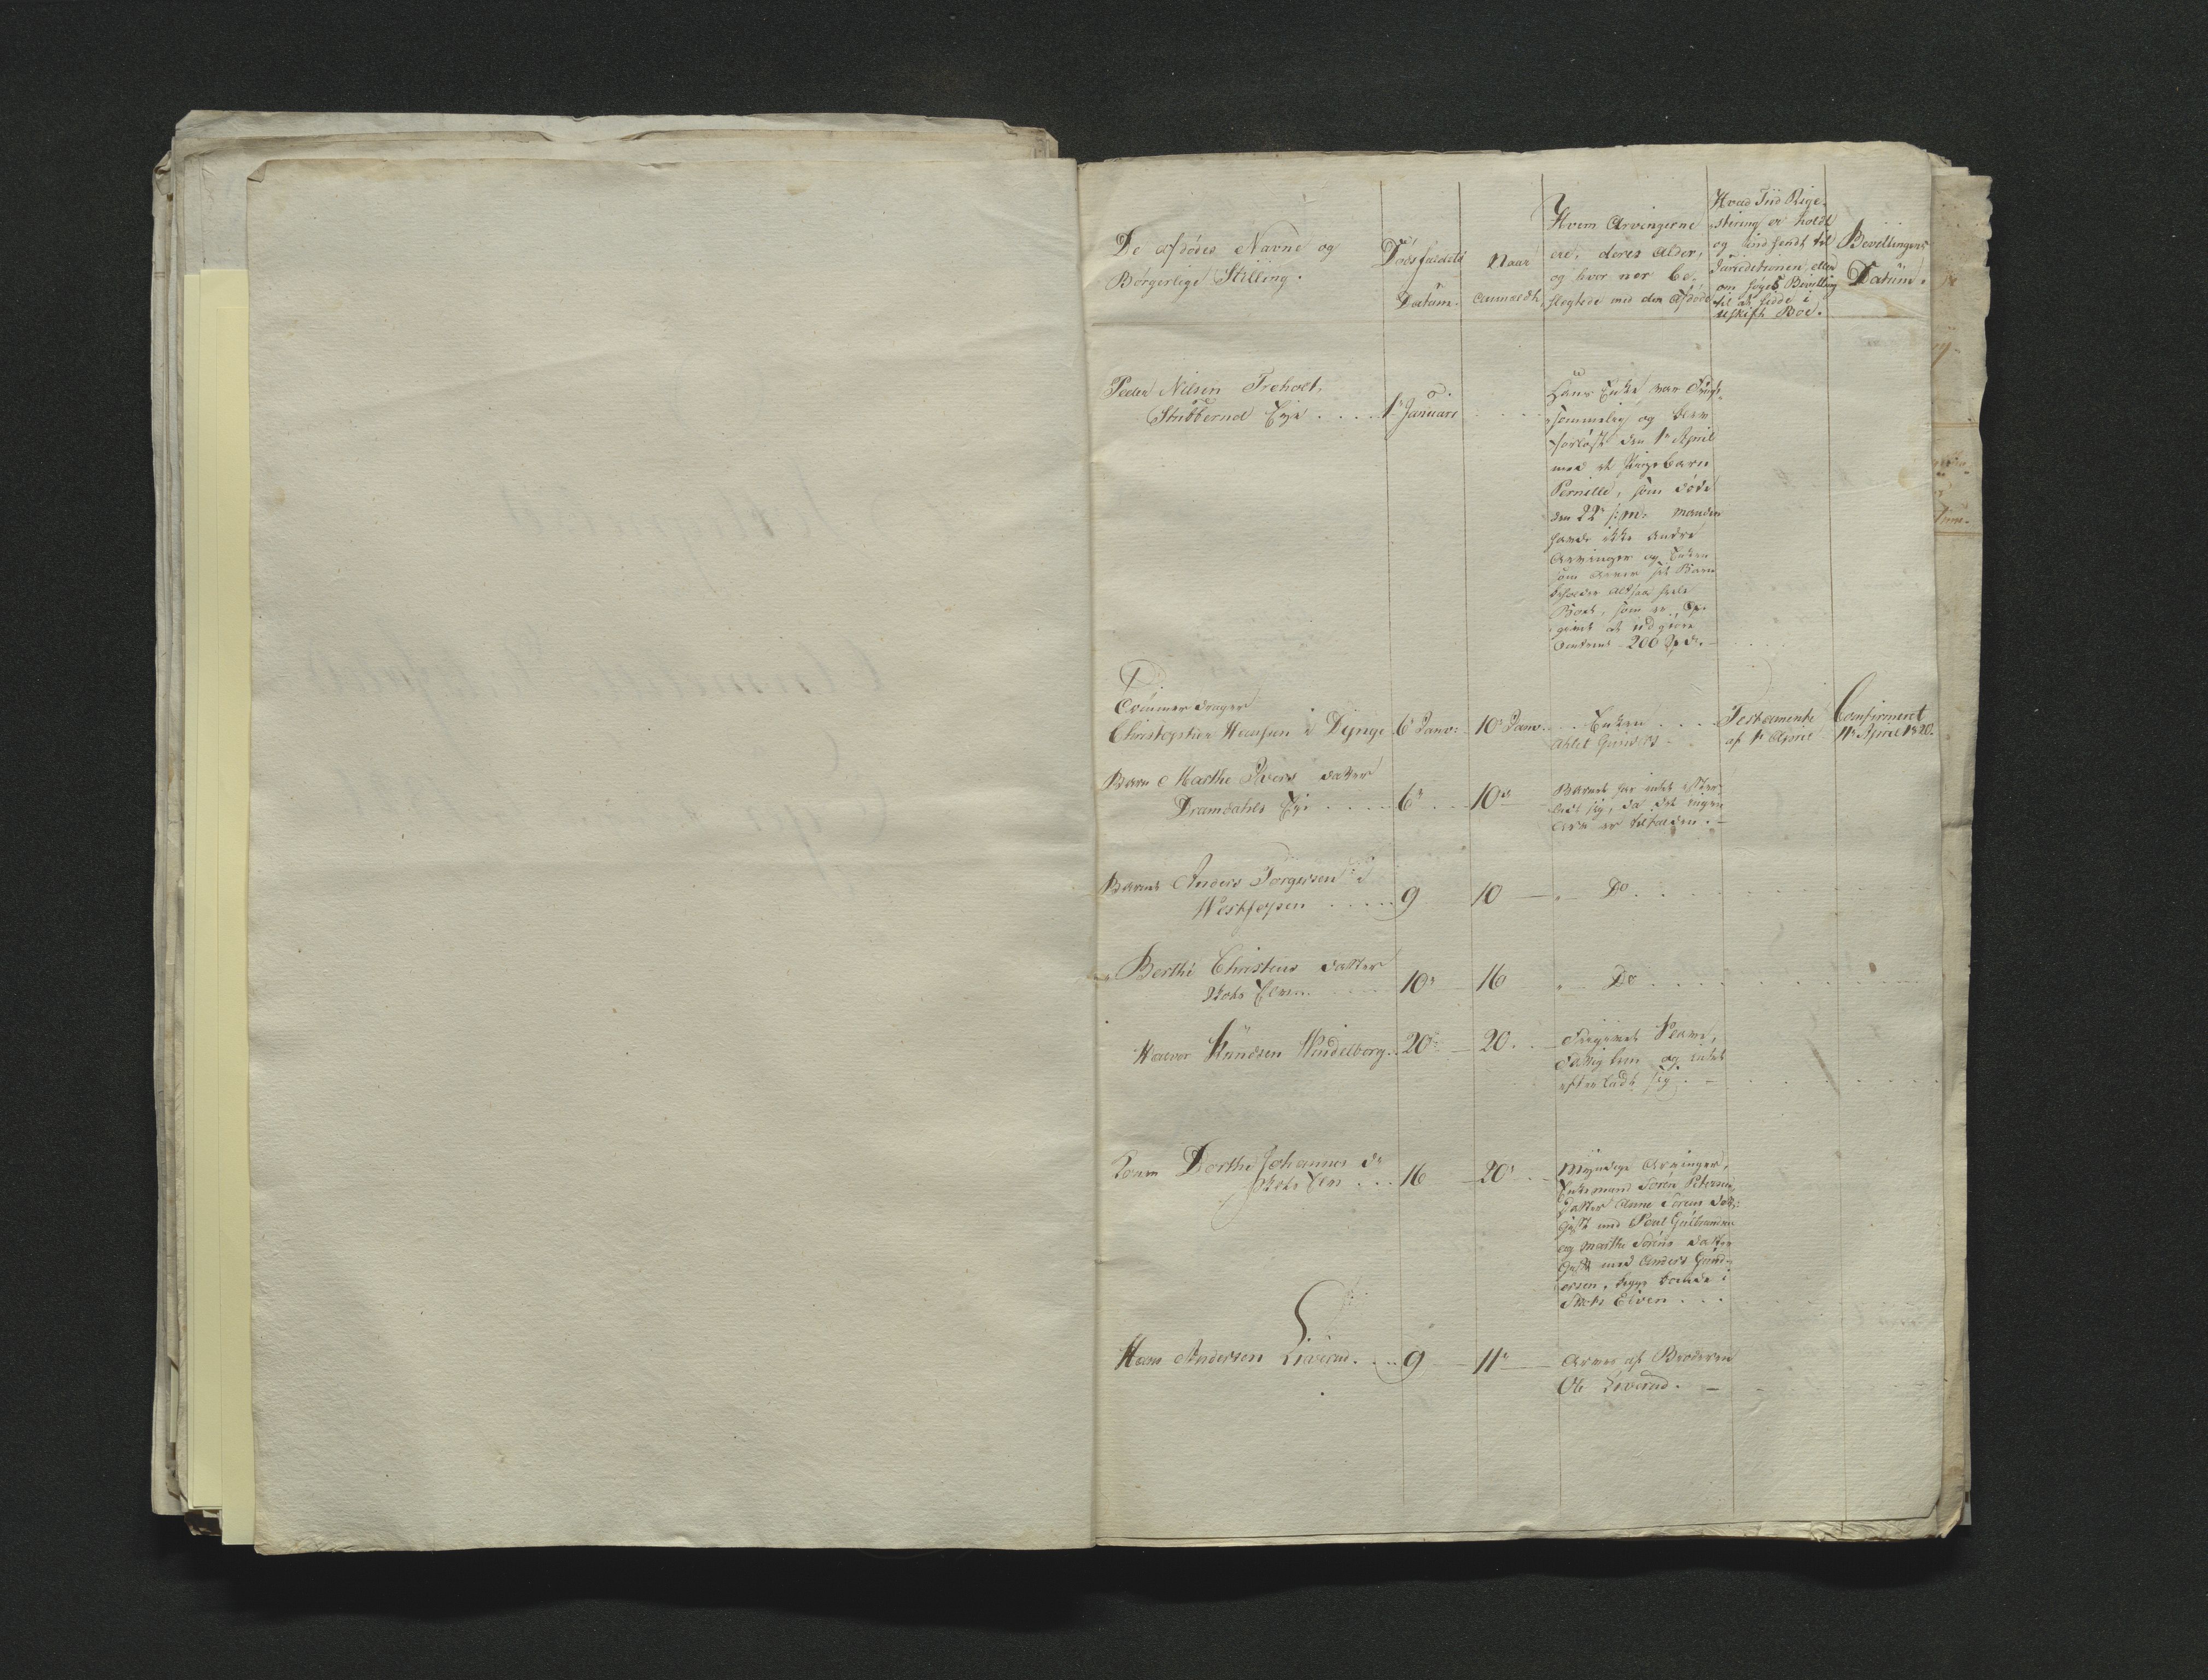 De afdødes Navne og
Borgerlige Stilling.
Dødsfaldets
Datum.
Naar
anmeldt,
Hvem Arvingerne
ere, deres Alder,
og hvor nær be-
slegtede med den Afdøde
Hvad Tiid Rige-
stering er holdt
og indsendt til
Jurisdictionen, eller
om søges Bevilling
til at sidde i
uskift Boe.
Bevillingens
Datum.
Peder Nilsen Treholt,
Stubberud Eye . . . .
1 Januari
Hans Enke var Frugt-
sommelig og blev
forløst den 1 April
med et Pigebarn
Pernille, som døde
den 22 s: m: Manden
havde ikke andre
Arvinger og Enken
som arver sit Barn
beholder altsaa hele
Boet, som er op-
givet at udgiøre
omtrent 200 Spd. -
Christopher Hansen i Dynge
6 Janv:
10 Janv.
. . Enken . . . .
Testamente
af 1 April
Confirmeret
11 April 1820.
Barn Marthe Ivers datter
Dramdahls Eye . . . .
6
10
Barnet har intet efter-
ladt sig, da det ingen
Arv er tilfalden. -
Barnet Anders Torgersen i
. . . .
9
10
Do . .
Berthe Christens datter
10
16
Do . . . .
Halvor Knudsen Hindelborg . .
20
20 . .
og intet
efterladt sig. -
Dorthe Johannes
16
20 . .
Myndige Arvinger,
Enkemand Soren Petersen
datter Anne Sorens Dat:
gift med Poul Gulbrandsen
og Marthe Sorens datter
gift med Anders Gund-
ersen, begge boende i
Elven . . .
Hans Andersen Liverud . . .
9
11
Arves af Broderen
Ole Liverud. -